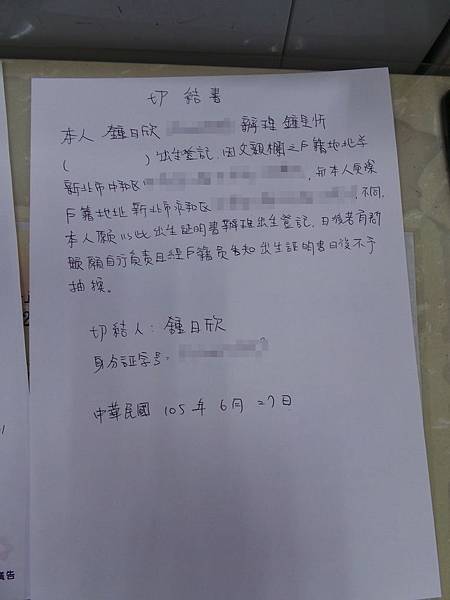 切結書
本人 鍾日欣 辦理 鍾是忻
( )出生登記,因父親欄之戶籍地址
新北市中和區 ,與本人實際
戶籍地址新北市永和區 不同,
本人願以此出生証明書辦理出生登記,日後若有問
題願自行負責且經戶籍員告知出生証明書日後不予
抽換。
切結人:鍾日欣
身分証字号:
中華民國 105 年 6 月 27 日
廣告